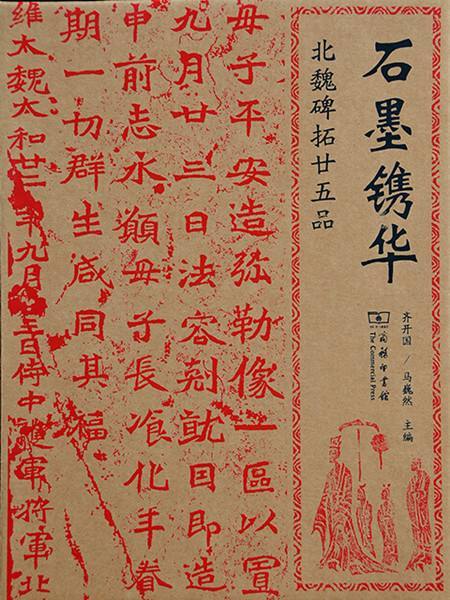 石墨镌华
北魏碑拓廿五品
齐开国 / 马巍然 主编
商務印書館
The Commercial Press
母子平安造弥勒像一區以置
九月廿三日法容刻就因即造
申前志永願母子長飡化年眷
期一切群生咸同其福
維太魏太和廿二年九月廿三日侍中護軍將軍北